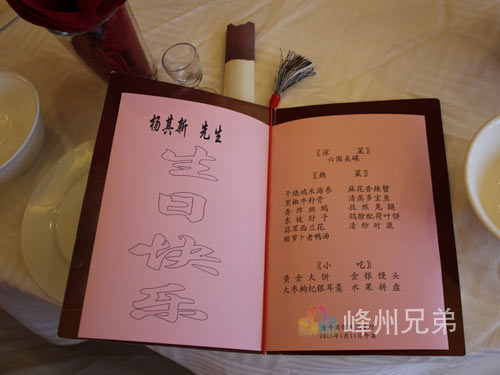 杨其新 先生
生日快乐
〖凉 菜〗
六围美碟
〖热 菜〗
干烧鸡米海参 麻花香辣蟹
黑椒牛籽骨 清蒸多宝鱼
香炸斑鸠 孜然兔腿
东坡肘子 鸽脯配荷叶饼
蒜茸西兰花 清炒时蔬
酸萝卜老鸭汤
〖小 吃〗
黄金大饼 金银馒头
大枣枸杞银耳羹 水果拼盘
2015年1月11日午宴
峰州兄弟